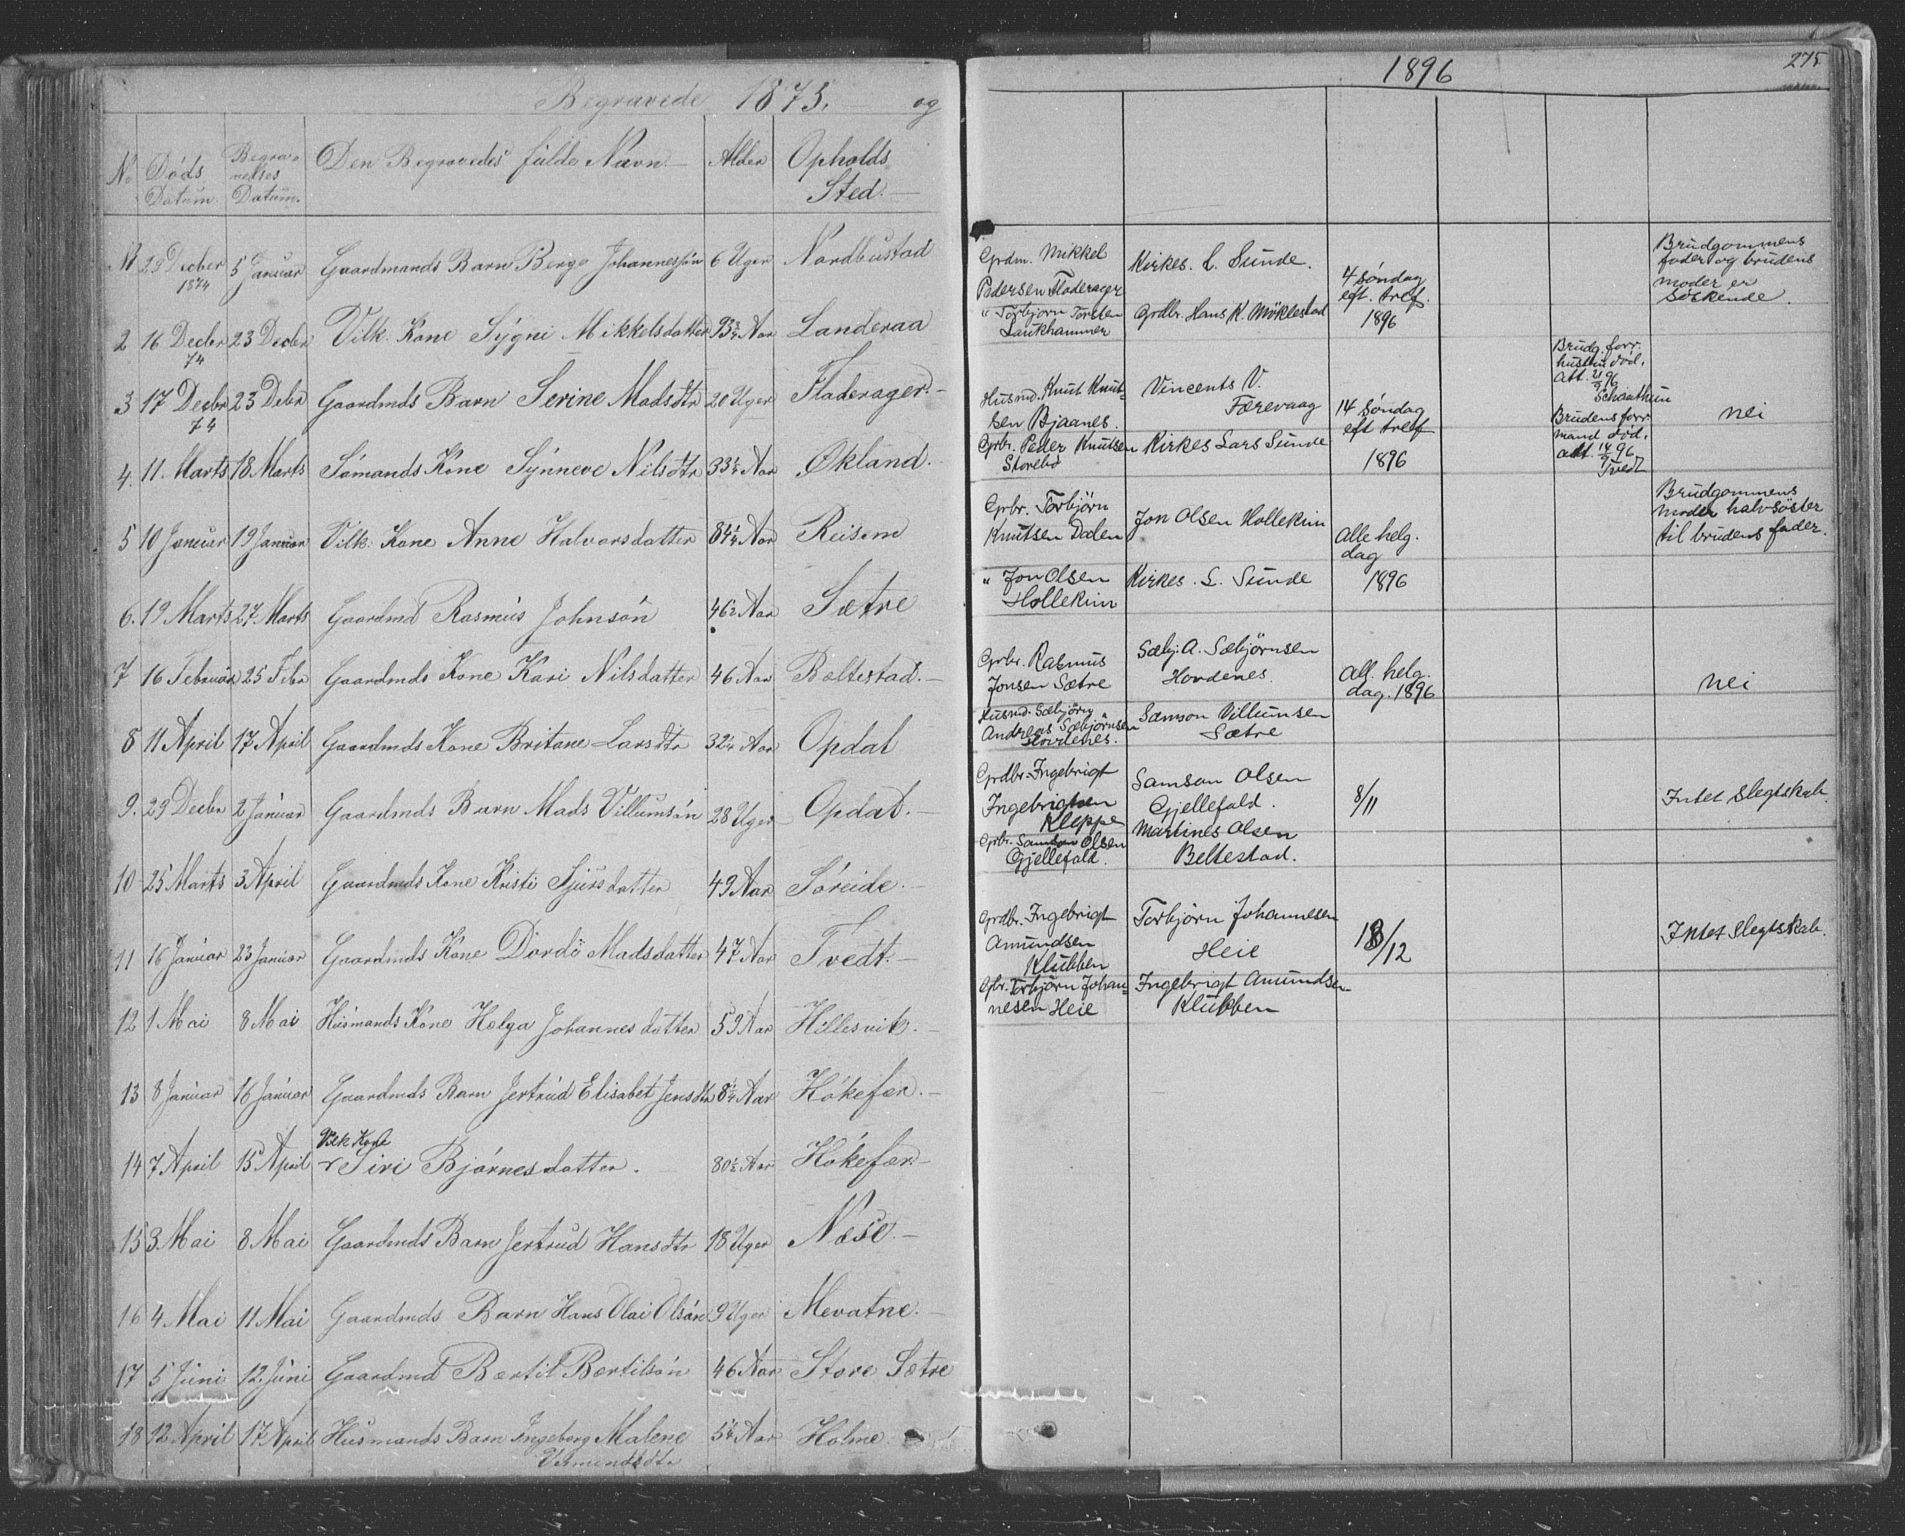 Begravede 1875. og
No Döds Datum Begravelses Datum. Den Begravedes fulde Navn Alder Opholds Sted.
29 Decber 1874 5 Januar Gaardmands Barn Berge Johannessön 6 Uger Nordbustad
2 16 Decbr 74 23 Decbr Vilk. Kone Sygni Mikkelsdatter 93½ Aar Landeraa
3 17 Decbr 74 23 Debr Gaardmds Barn Serine Madsdtr 20 Uger Fladerager.
4. 11. Marts 18. Marts Sömands Kone Synneve Nilsdtr 33½ Aar Økland.
5 10 Januar 19 Januar Vilk. Kone Anne Halvorsdatter 84¼ Aar Reisem
6. 19. Marts 27. Marts Gaardmd Rasmus Johnsön 46½ Aar Sætre
7 16 Februar 25 Febr Gaardmds Kone Kari Nilsdatter 46 Aar Boltestad.
8 11 April 17 April Gaardmds Kone Britane Larsdtr 32¼ Aar Opdal
9. 29 Decbr 2 Januar Gaardmds Barn Mads Villumsön 28 Uger Opdal.
10 25 Marts 3 April Gaardmds Kone Kristi Sjursdatter 49 Aar Söreide.
11 16 Januar 23 Januar Gaardmds Kone Dordö Madsdatter 47 Aar Tvedt.
12 1 Mai 8 Mai Husmands Kone Helga Johannesdatter 59 Aar Hillesvik.
13 8 Januar 16 Januar Gaardmds Barn Jertrud Elisabet Jensdtr 8½ Aar Hökefær.
14 7 April 15 April Vilk Kone Siri Björnesdatter. 80½ Aar Hökefær.
15 3. Mai 8 Mai Gaardmds Barn Jertrud Hansdtr 18 Uger Nese.
16 4 Mai 11 Mai Gaardmds Barn Hans Olai Olsön 9 Uger Mevatne.
17 5 Juni 12. Juni Gaardmd Bærtil Bærtilsön 46 Aar Store Sætre
18 12 April 17. April Husmands Barn Ingeborg Malene 5¼ Aar Holme
Vermundsdtr
1896 275
Grdm. Mikkel
Pedersen Fladerager
Kirkes. L. Sunde.
4 Søndag
eft. tref.
1896
Brudgommens
fader og brudens
moder er
søskende.
" Torbjørn Torsten
Laukhammer
Grdbr. Hans K. Møklestad
Husmd. Knut Knut-
sen Bjaanes.
Vincents V.
Færevaag
14 Søndag
eft tref
1896
Brudg. forr.
hustru død.
Att. 21/9 96
Schaathun
nei
Gbr. Peder Knutsen
Storebø
Kirkes Lars Sunde
Brudens forr.
mand død.
att. 14/9 96
Tvedt
Gbr. Torbjörn
Knutsen Dalen
Jon Olsen Hollekim
Alle helg.
dag
1896
Brudgommens
moder halvsöster
til brudens fader.
" Jon Olsen
Hollekim
Kirkes. L. Sunde
Gbr. Rasmus
Jonsen Sætre
Sæbj. A. Sæbjørnsen
Hovdenes.
All. helg.
dag. 1896
nei
Husmd. Sæbjørn
Andreas Sæbjørnsen
Hovdenes.
Samson Villumsen
Sætre
Grdbr. Ingebrigt
Ingebrigtsen
Kleppe
Samson Olsen
Gjellefald.
8/11
Intet Slegtskab.
Gbr. Samson Olsen
Gjellefald.
Martines Olsen
Beltestad.
Grdbr. Ingebrigt
Amundsen
Klubben
Torbjörn Johannesen
Heie
13/12
Intet Slegtskab.
Gbr. Torbjörn Johan-
nesen Heie
Ingebrigt Amundsen
Klubben